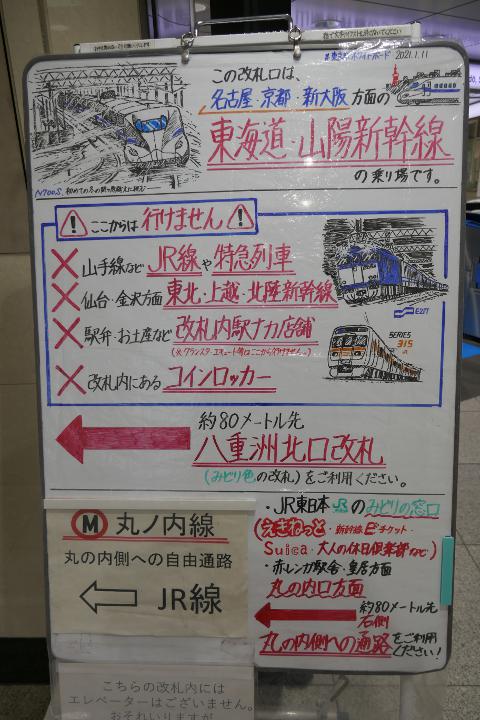 2021.1.11
この改札口は、
名古屋・京都・新大阪 方面の
東海道・山陽新幹線
の乗り場です。
N700S
ここからは行けません
山手線など JR線や特急列車
仙台・金沢方面 東北・上越・北陸新幹線
駅弁・お土産など 改札内駅ナカ店舗
改札内にある コインロッカー
SERIES
315
約80メートル先
八重洲北口改札
(みどり色の改札)をご利用ください。
M 丸ノ内線
丸の内側への自由通路
JR線
・JR東日本 JRのみどりの窓口
(えきねっと・新幹線eチケット・
Suica・大人の休日倶楽部など)
・赤レンガ駅舎・皇居方面
丸の内口方面
約80メートル先
右側
丸の内側への通路をご利用
ください!
こちらの改札内には
エレベーターはございません。
おそれいりますが